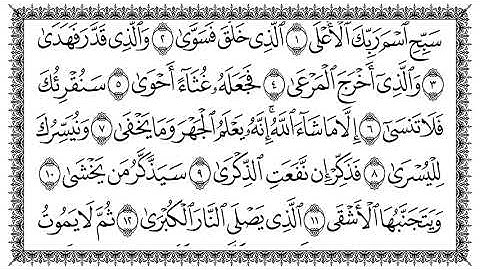 سَبِّحِ ٱسْمَ رَبِّكَ ٱلْأَعْلَى ١ ٱلَّذِى خَلَقَ فَسَوَّىٰ ٢ وَٱلَّذِى قَدَّرَ فَهَدَىٰ
٣ وَٱلَّذِىٓ أَخْرَجَ ٱلْمَرْعَىٰ ٤ فَجَعَلَهُۥ غُثَآءً أَحْوَىٰ ٥ سَنُقْرِئُكَ
فَلَا تَنسَىٰٓ ٦ إِلَّا مَا شَآءَ ٱللَّهُ إِنَّهُۥ يَعْلَمُ ٱلْجَهْرَ وَمَا يَخْفَىٰ ٧ وَنُيَسِّرُكَ
لِلْيُسْرَىٰ ٨ فَذَكِّرْ إِن نَّفَعَتِ ٱلذِّكْرَىٰ ٩ سَيَذَّكَّرُ مَن يَخْشَىٰ ١٠
وَيَتَجَنَّبُهَا ٱلْأَشْقَى ١١ ٱلَّذِى يَصْلَى ٱلنَّارَ ٱلْكُبْرَىٰ ١٢ ثُمَّ لَا يَمُوتُ